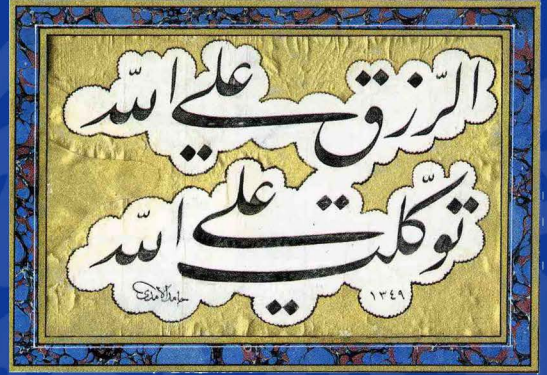 الرّزق علي الله
توكّلت علي الله
حامد الآمدي
١٣٤٩